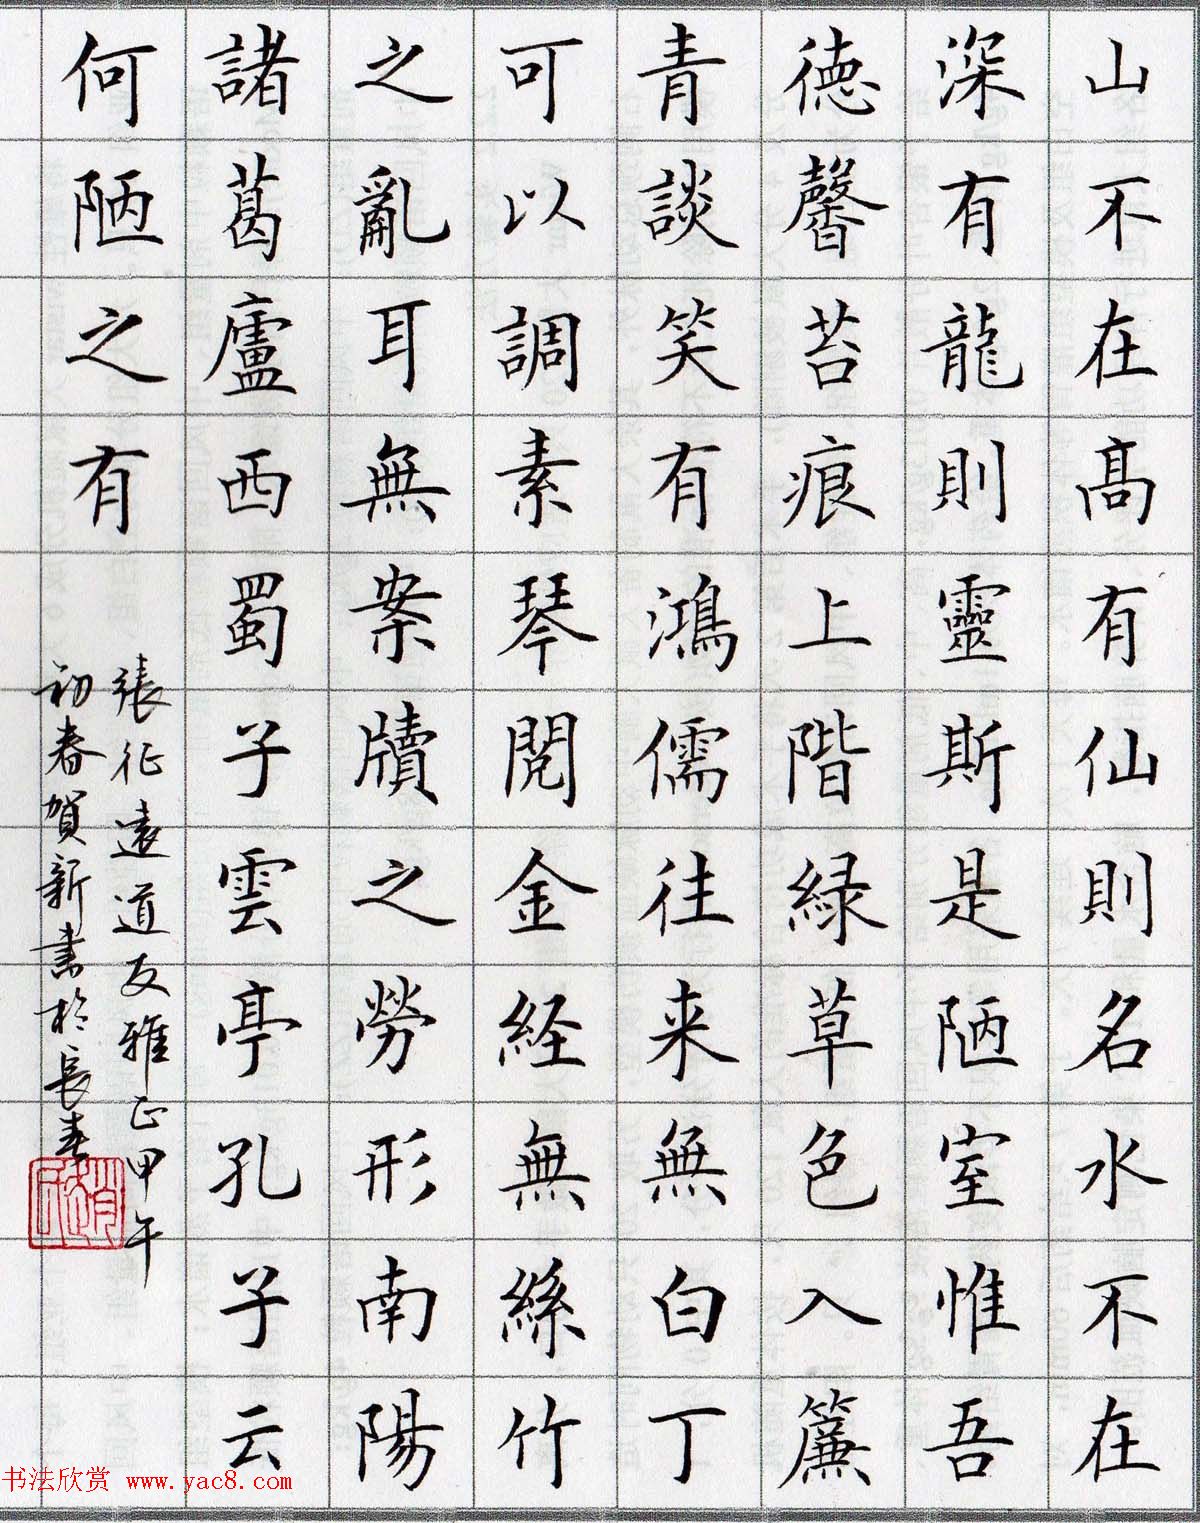 山不在高有仙則名水不在
深有龍則靈斯是陋室惟吾
德馨苔痕上階緑草色入簾
青談笑有鴻儒往来無白丁
可以調素琴閱金経無絲竹
之亂耳無案牘之勞形南陽
諸葛廬西蜀子雲亭孔子云
何陋之有
張征遠道友雅正甲午
初春賀新書於長春
书法欣赏 www.yac8.com